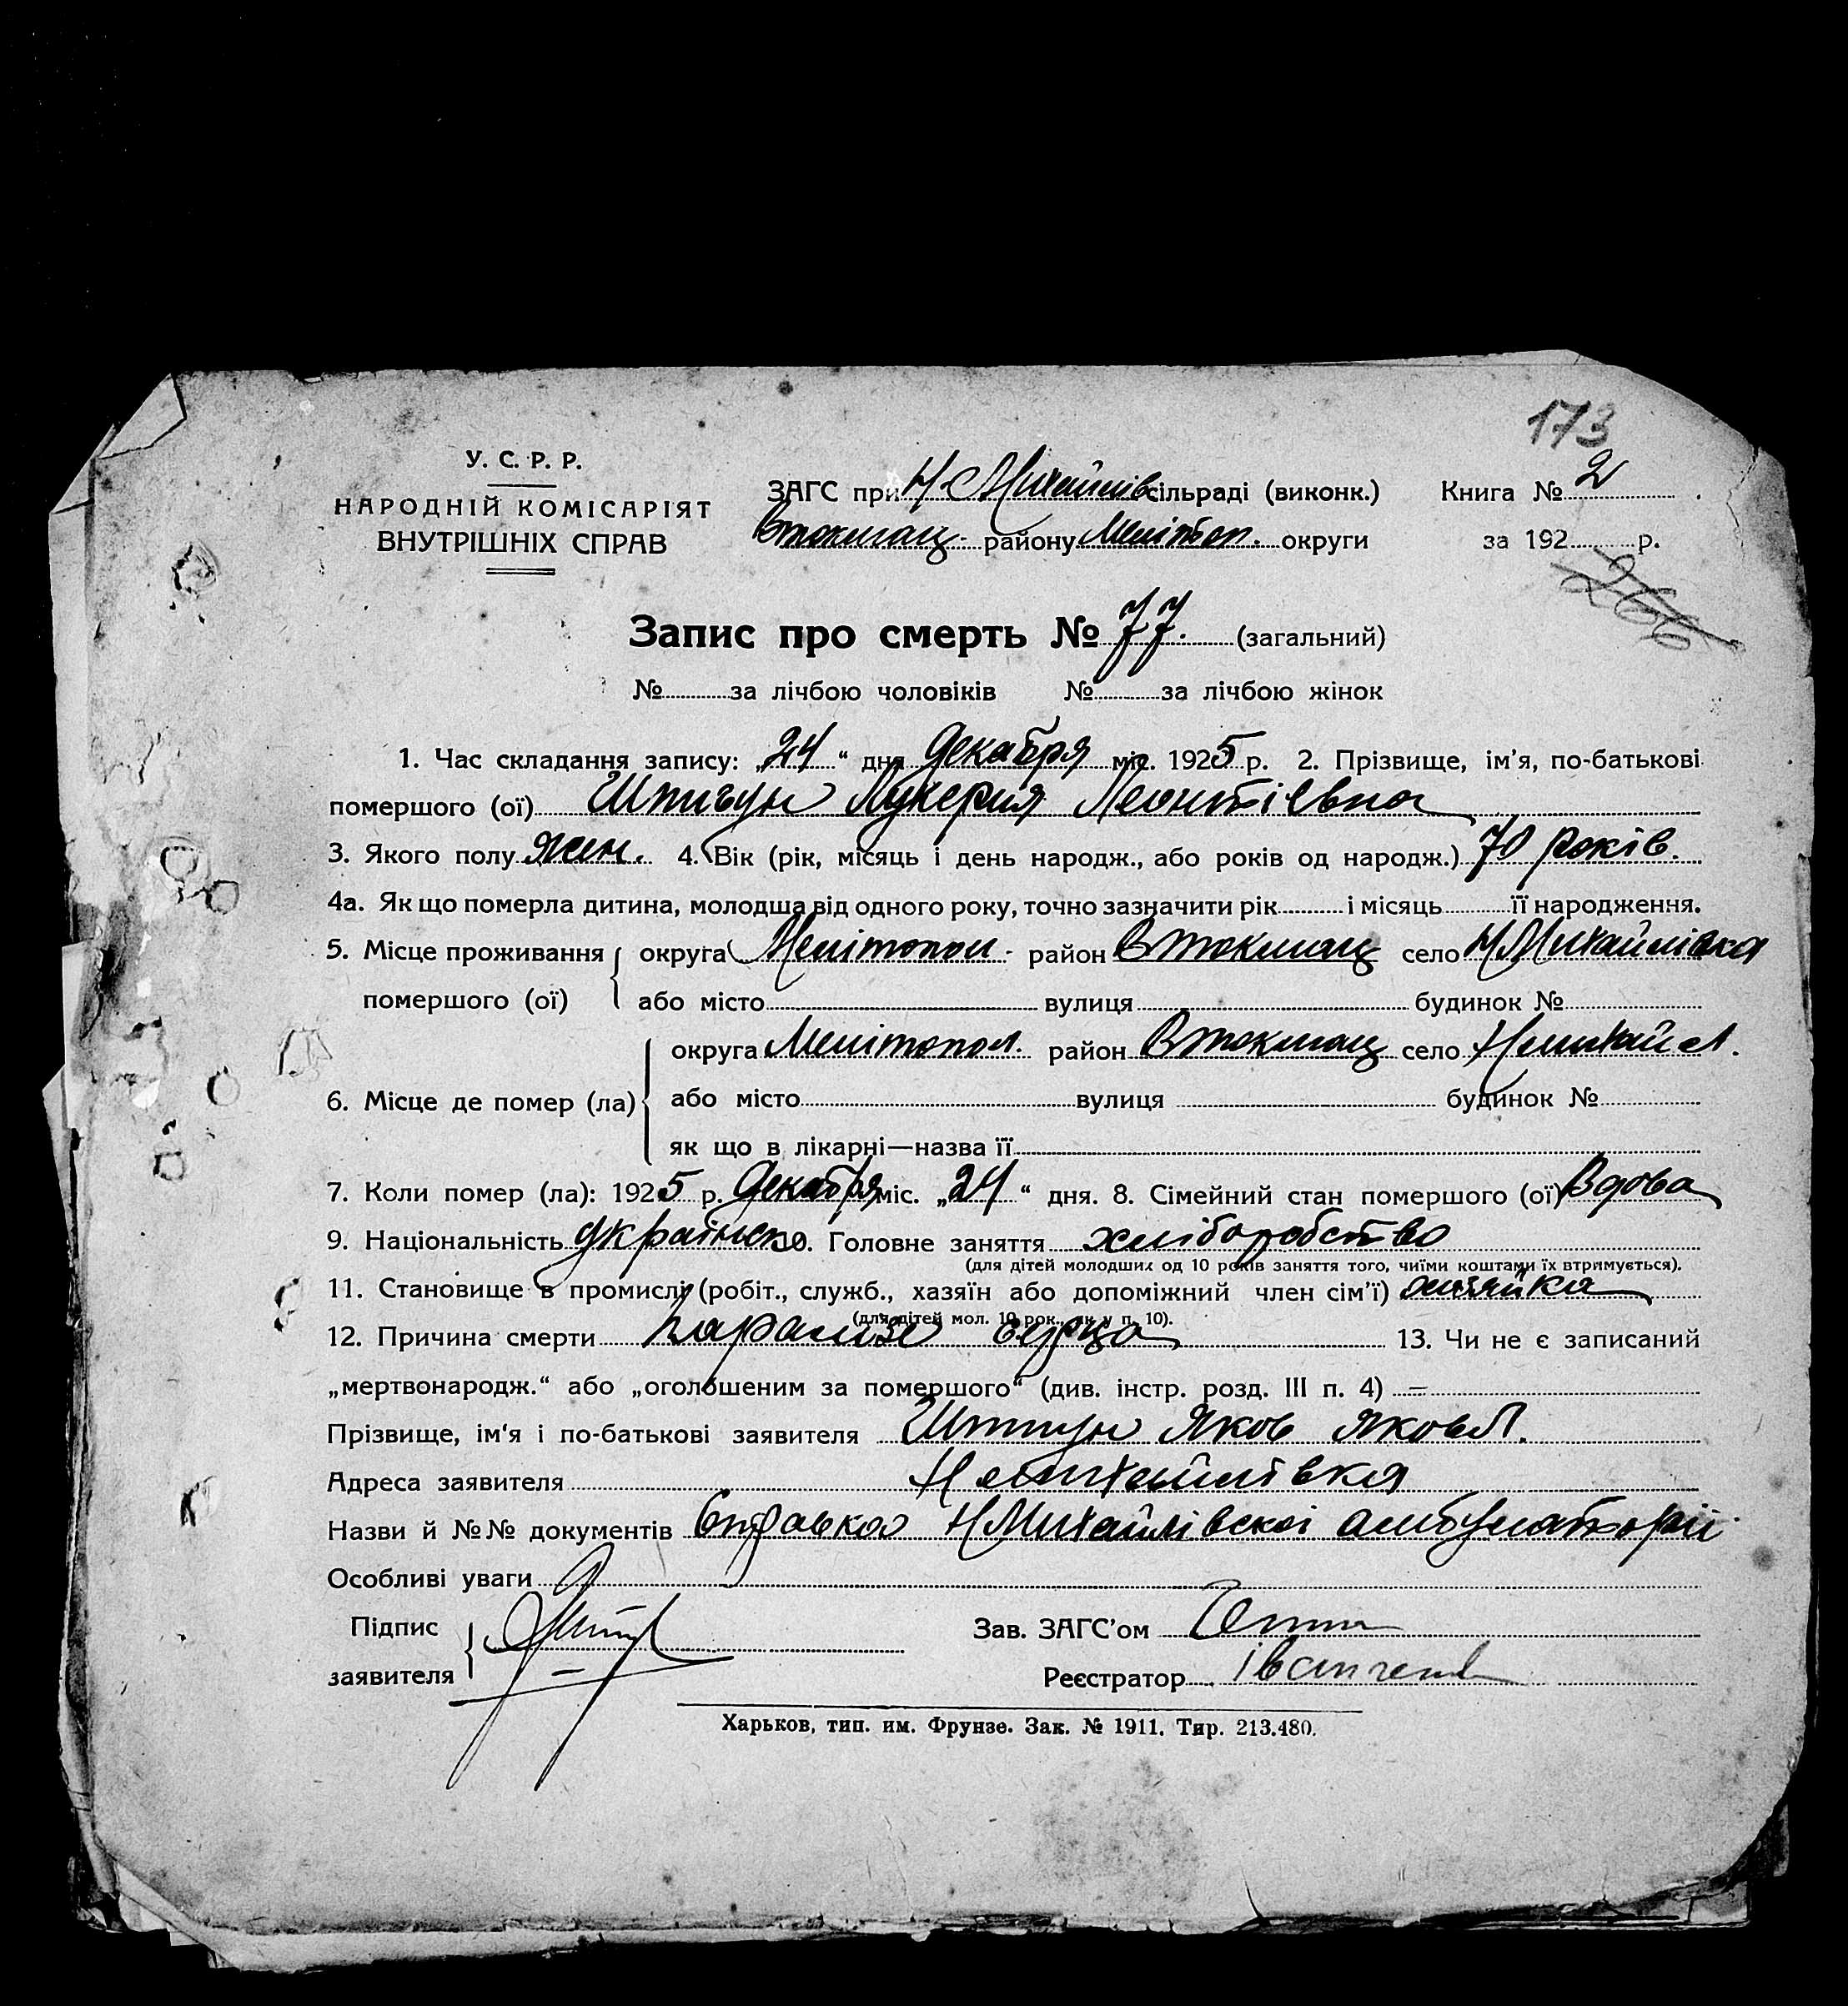 173
У. С. Р. Р.
НАРОДНІЙ КОМІСАРІЯТ
ВНУТРІШНІХ СПРАВ
ЗАГС при Н-Михайлів сільраді (виконк.) Книга № 2
Втокмац. району Мелітоп. округи за 192 р.
266
Запис про смерть № 77. (загальний)
№ за лічбою чоловіків № за лічбою жінок
1. Час складання запису: „24“ дня Декабря міс. 1925 р. 2. Прізвище, ім'я, по-батькові
помершого (ої) Штигун Лукерия Леонтіевна
3. Якого полу жен. 4. Вік (рік, місяць і день народж., або років од народж.) 70 років.
4а. Як що померла дитина, молодша від одного року, точно зазначити рік і місяць її народження.
5. Місце проживання округа Мелітопол. район Втокмац село Н Михайлівка
помершого (ої) або місто вулиця будинок №
округа Мелітопол. район Втокмац село Н михайл.
6. Місце де помер (ла) або місто вулиця будинок №
як що в лікарні—назва її
7. Коли помер (ла): 1925 р. Декабря міс. „24“ дня. 8. Сімейний стан помершого (ої) Вдова
9. Національність Українск 10. Головне заняття хліборобство
(для дітей молодших од 10 років заняття того, чиїми коштами їх втримується).
11. Становище в промислі (робіт., служб., хазяїн або допоміжний член сім'ї) хозяйка
(для дітей мол. 10 рок., як у п. 10).
12. Причина смерти Паралізе серца 13. Чи не є записаний
„мертвонародж.“ або „оголошеним за помершого“ (див. інстр. розд. III п. 4) —
Прізвище, ім'я і по-батькові заявителя Штигун Яков Яковл.
Адреса заявителя Н Михайлівка
Назви й №№ документів Справка Н Михайлівскоі амбулаторіі
Особливі уваги
Підпис
заявителя
Зав. ЗАГС'ом
Реєстратор Іванченко
Харьков, тип. им. Фрунзе. Зак. № 1911. Тир. 213.480.